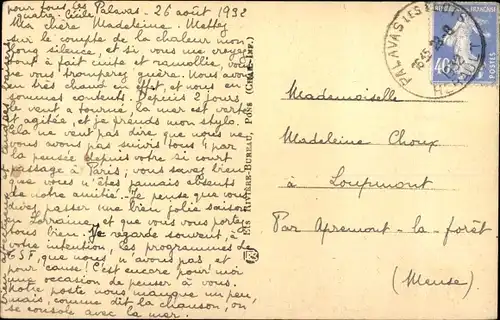 pour tous les Palavas - 26 août 1932
quatre. Cécile
Ma chère Madeleine. Mettez
sur le compte de la chaleur mon
long silence, et si vous me croyez
tout à fait cuite et ramollie, vous
ne vous tromperez guère. Nous avons
eu très chaud en effet, et nous en
sommes contents. Depuis 2 jours
le vent a tourné, la mer est verte
et agitée, et je prends mon stylo.
Cela ne veut pas dire que nous ne
vous avons pas suivis tous par
la pensée depuis votre si court
passage à Paris; vous savez bien
que vous n'êtes jamais absents
de notre amitié. Je pense que vous
devez passer une bien jolie saison
en Lorraine, et que vous vous portez
tous bien. Je regarde souvent, à
votre intention, les programmes de
T.S.F. que nous n'avons pas et
pour cause! C'est encore pour moi
une occasion de penser à vous.
Notre poste nous manque un peu,
mais, comme dit la chanson, on
se console avec la mer.
Ets RIVIÈRE-BUREAU, PONS (CHAR.-INF.)
PALAVAS LES FLOTS
HERAULT
POSTES
40c
Mademoiselle
Madeleine Choux
à Loupmont
Par Apremont-la-forêt
(Meuse)